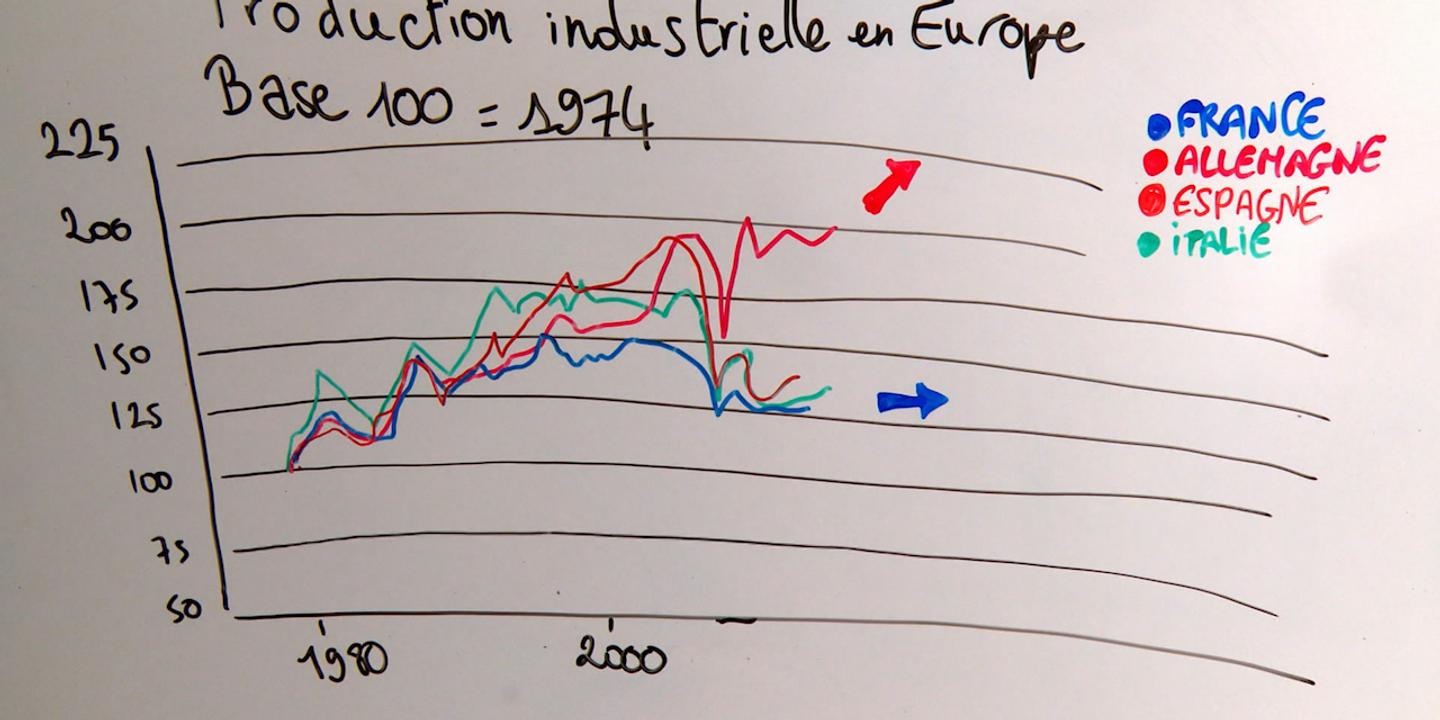 Production industrielle en Europe
Base 100 = 1974
225
200
175
150
125
100
75
50
1980
2000
FRANCE
ALLEMAGNE
ESPAGNE
iTALIE